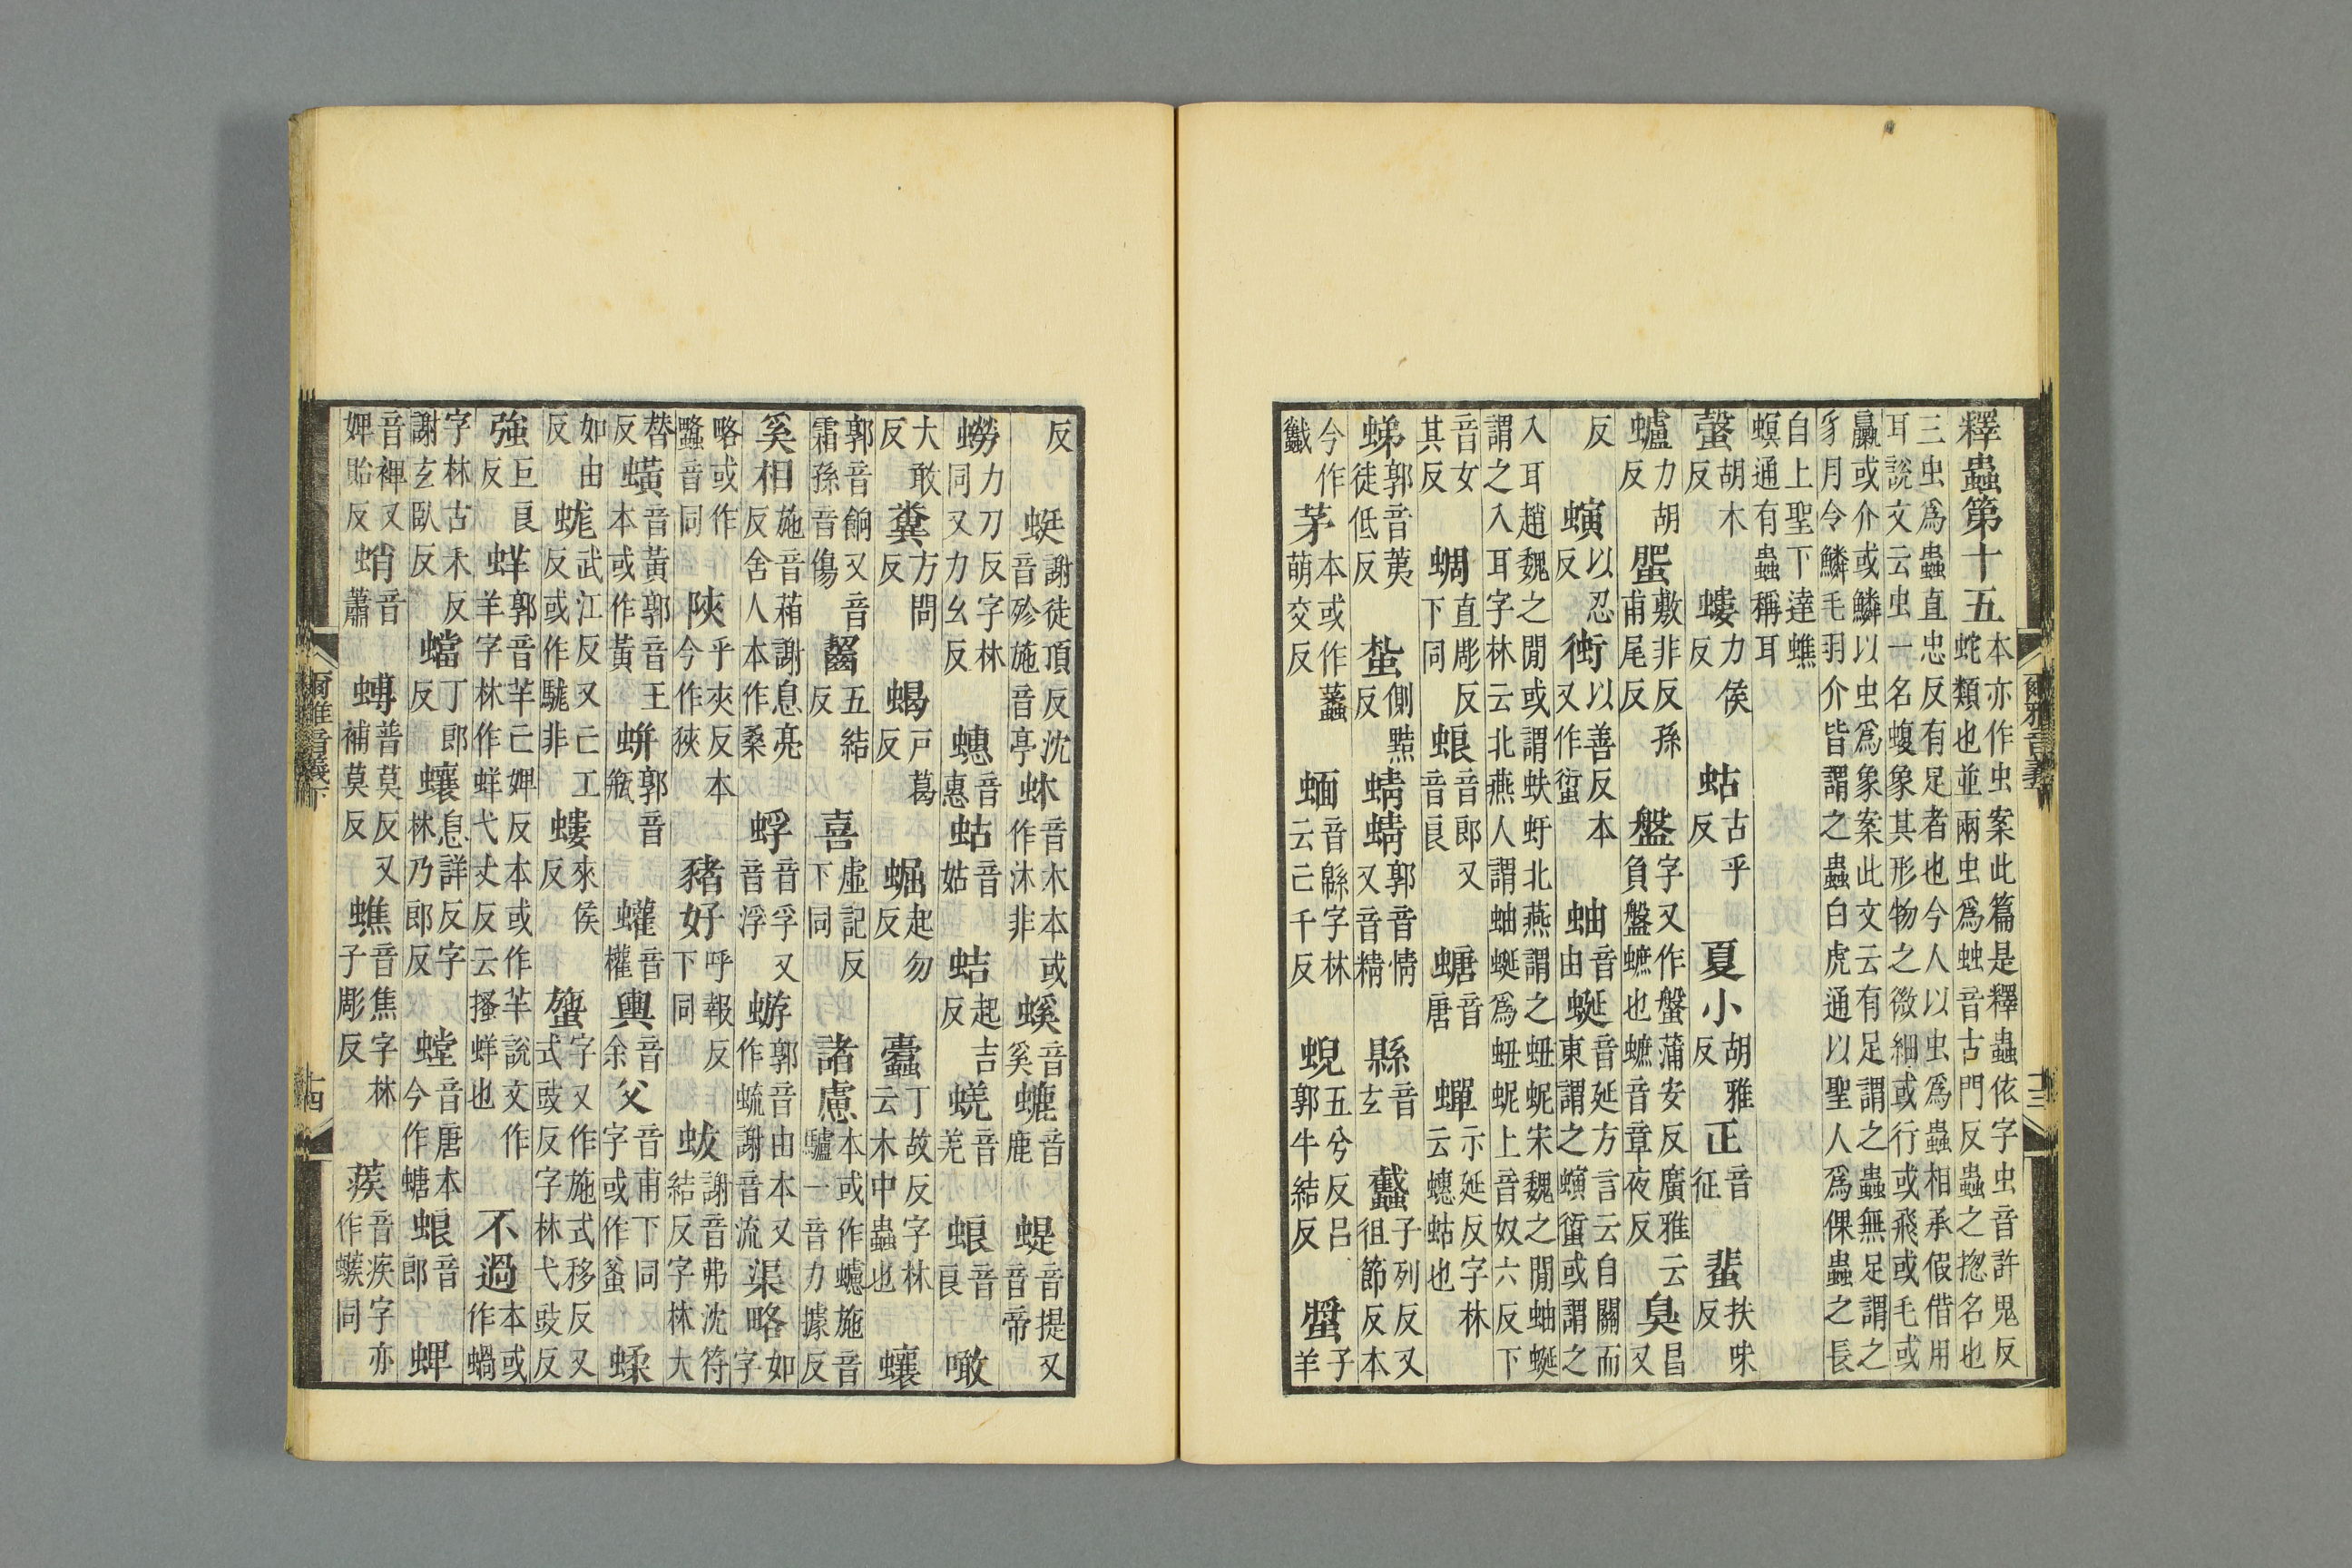 釋蟲第十五本亦作虫案此篇是釋蟲依字虫音許鬼反蛇類也並兩虫爲䖵音古門反蟲之揔名也
三虫爲蟲直忠反有足者也今人以虫爲蟲相承假借用耳說文云虫一名蝮象其形物之微細或行或飛或毛或
蠃或介或鱗以虫爲象案此文云有足謂之蟲無足謂之豸月令鱗毛羽介皆謂之蟲白虎通以聖人爲倮蟲之長
自上聖下達蟭螟通有蟲稱耳
螜胡木反螻力侯反蛄古乎反夏小胡雅反正音征蜚扶味反
蠦力胡反蜰敷非反孫甫尾反盤字又作盤蒲安反廣雅云負盤蟅也蟅音章夜反臭昌又
反螾以忍反以善反本又作䘆蚰音由蜒音延方言云自關而東謂之螾䘆或謂之
入耳趙魏之閒或謂蚨虶北燕謂之䖡蚭宋魏之閒蚰蜒謂之入耳字林云北燕人謂蚰蜒爲䖡蚭上音奴六反下
音女其反蜩直彫反下同蜋音郎又音良螗音唐蟬示延反字林云蟪蛄也
䗖郭音荑徒低反蚻側黠反蜻蜻郭音情又音精縣音玄蠽子列反又徂節反本
今作茅本或作蟊萌交反蝒音緜字林云亡千反蜺五兮反呂郭牛結反螿子羊
反蜓謝徒頂反沈音殄施音亭蚞音木本或作沐非螇音奚螰音鹿蝭音提又音帝
蟧力刀反字林同又力幺反蟪音惠蛄音姑蛣起吉反蜣音羌蜋音良噉
大敢反糞方問反蝎戶葛反𧌑起勿反蠹丁故反字林云木中蟲也蠰
郭音餉又音霜孫音傷齧五結反喜虛記反下同諸慮本或作蠦施音驢一音力據反
奚相施音葙謝息亮反舍人本作桑蜉音孚又音浮蝣郭音由本又作謝音流渠略如字
略或作音同陜乎夾反本今作狹豬好呼報反下同蛂謝音弗沈符結反字林大
替反蟥音黃郭音王本或作黃蛢郭音瓶蠸音權輿音余父音甫下同字或作蚥蝚
如由反蛖武江反又亡工反或作駹非螻來侯反字又作施式移反又式豉反字林弋豉反
強巨良反蛘郭音羊亡婢反本或作芈說文作羊字林作蛘弋丈反云搔蛘也不過本或作蝸
字林古禾反謝玄臥反蟷丁郎反蠰息詳反字林乃郎反螳音唐本今作螗蜋音郎蜱
音裨又婢貽反蛸音蕭䗚普莫反又補莫反蟭音焦字林子彫反蒺音疾字亦作螏同
爾雅音義下
十四